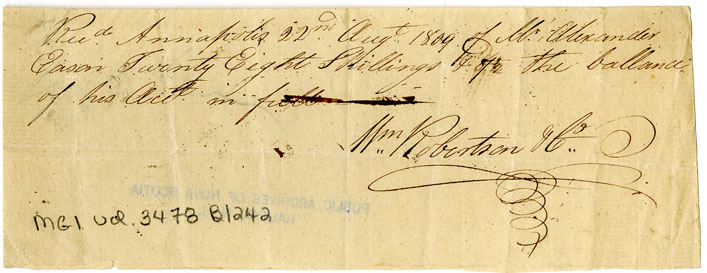 Recd Annapolis 22nd Augt 1809 of Mr Alexander
Eason Twenty Eight Shillings & the ballance
of his Acct in full
Wm Robertson & Co.
PUBLIC ARCHIVES OF NOVA SCOTIA
MG1 Vol. 3478 B1242